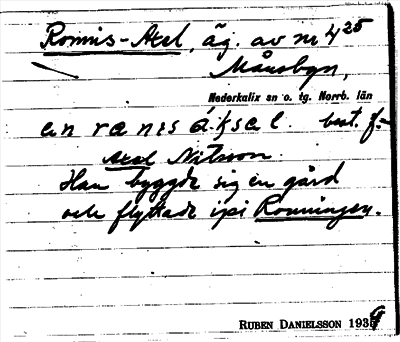 Romnis-Axel, äg. av nr 4²⁵
Månsbyn,
Nederkalix sn o. tg. Norrb. län
best. f.
Axel Nilsson.
Han byggde sig en gård
och flyttade ipå Romningen.
RUBEN DANIELSSON 1939